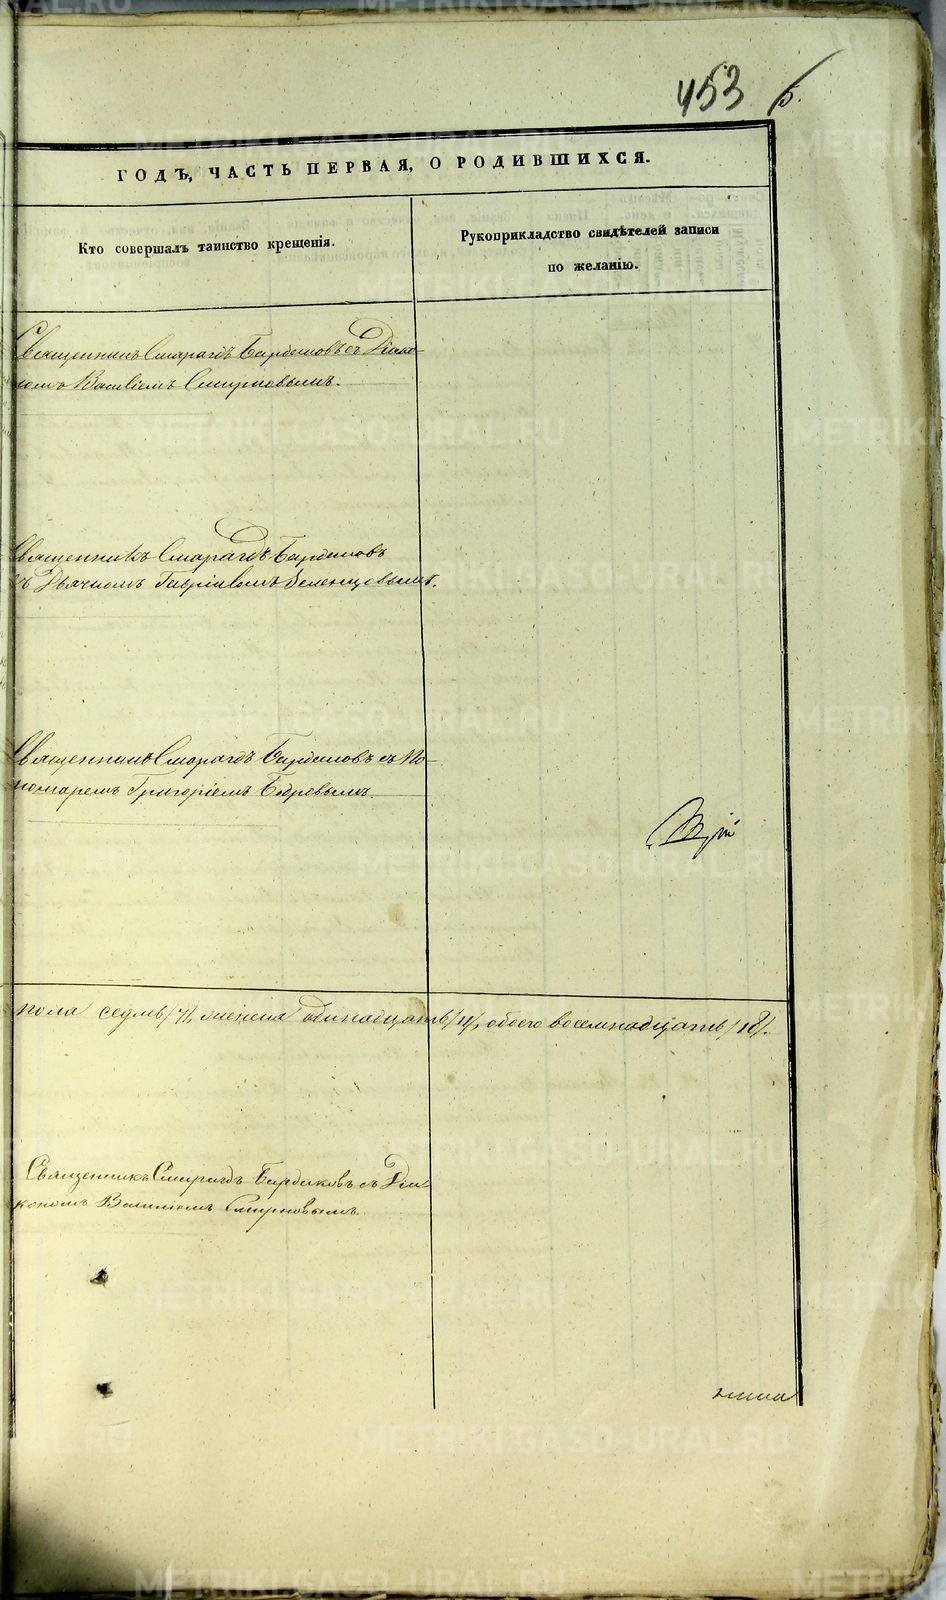 453
ГОДЪ, ЧАСТЬ ПЕРВАЯ, О РОДИВШИХСЯ.
Кто совершалъ таинство крещенія.
Рукоприкладство свидѣтелей записи
по желанію.
Священникъ Смарагдъ Бардаковъ съ Діако-
номъ Василіемъ Смирновымъ.
Священникъ Смарагдъ Бардаковъ
съ Дьячкомъ Гавріиломъ
Священникъ Смарагдъ Бардаковъ съ По-
номаремъ Григоріемъ
пола седмь /7/, женска одинадцать /11/, обоего восемнадцать /18/.
Священникъ Смарагдъ Бардаковъ съ Діа-
кономъ Василіемъ Смирновымъ.
METRIKI.GASO-URAL.RU